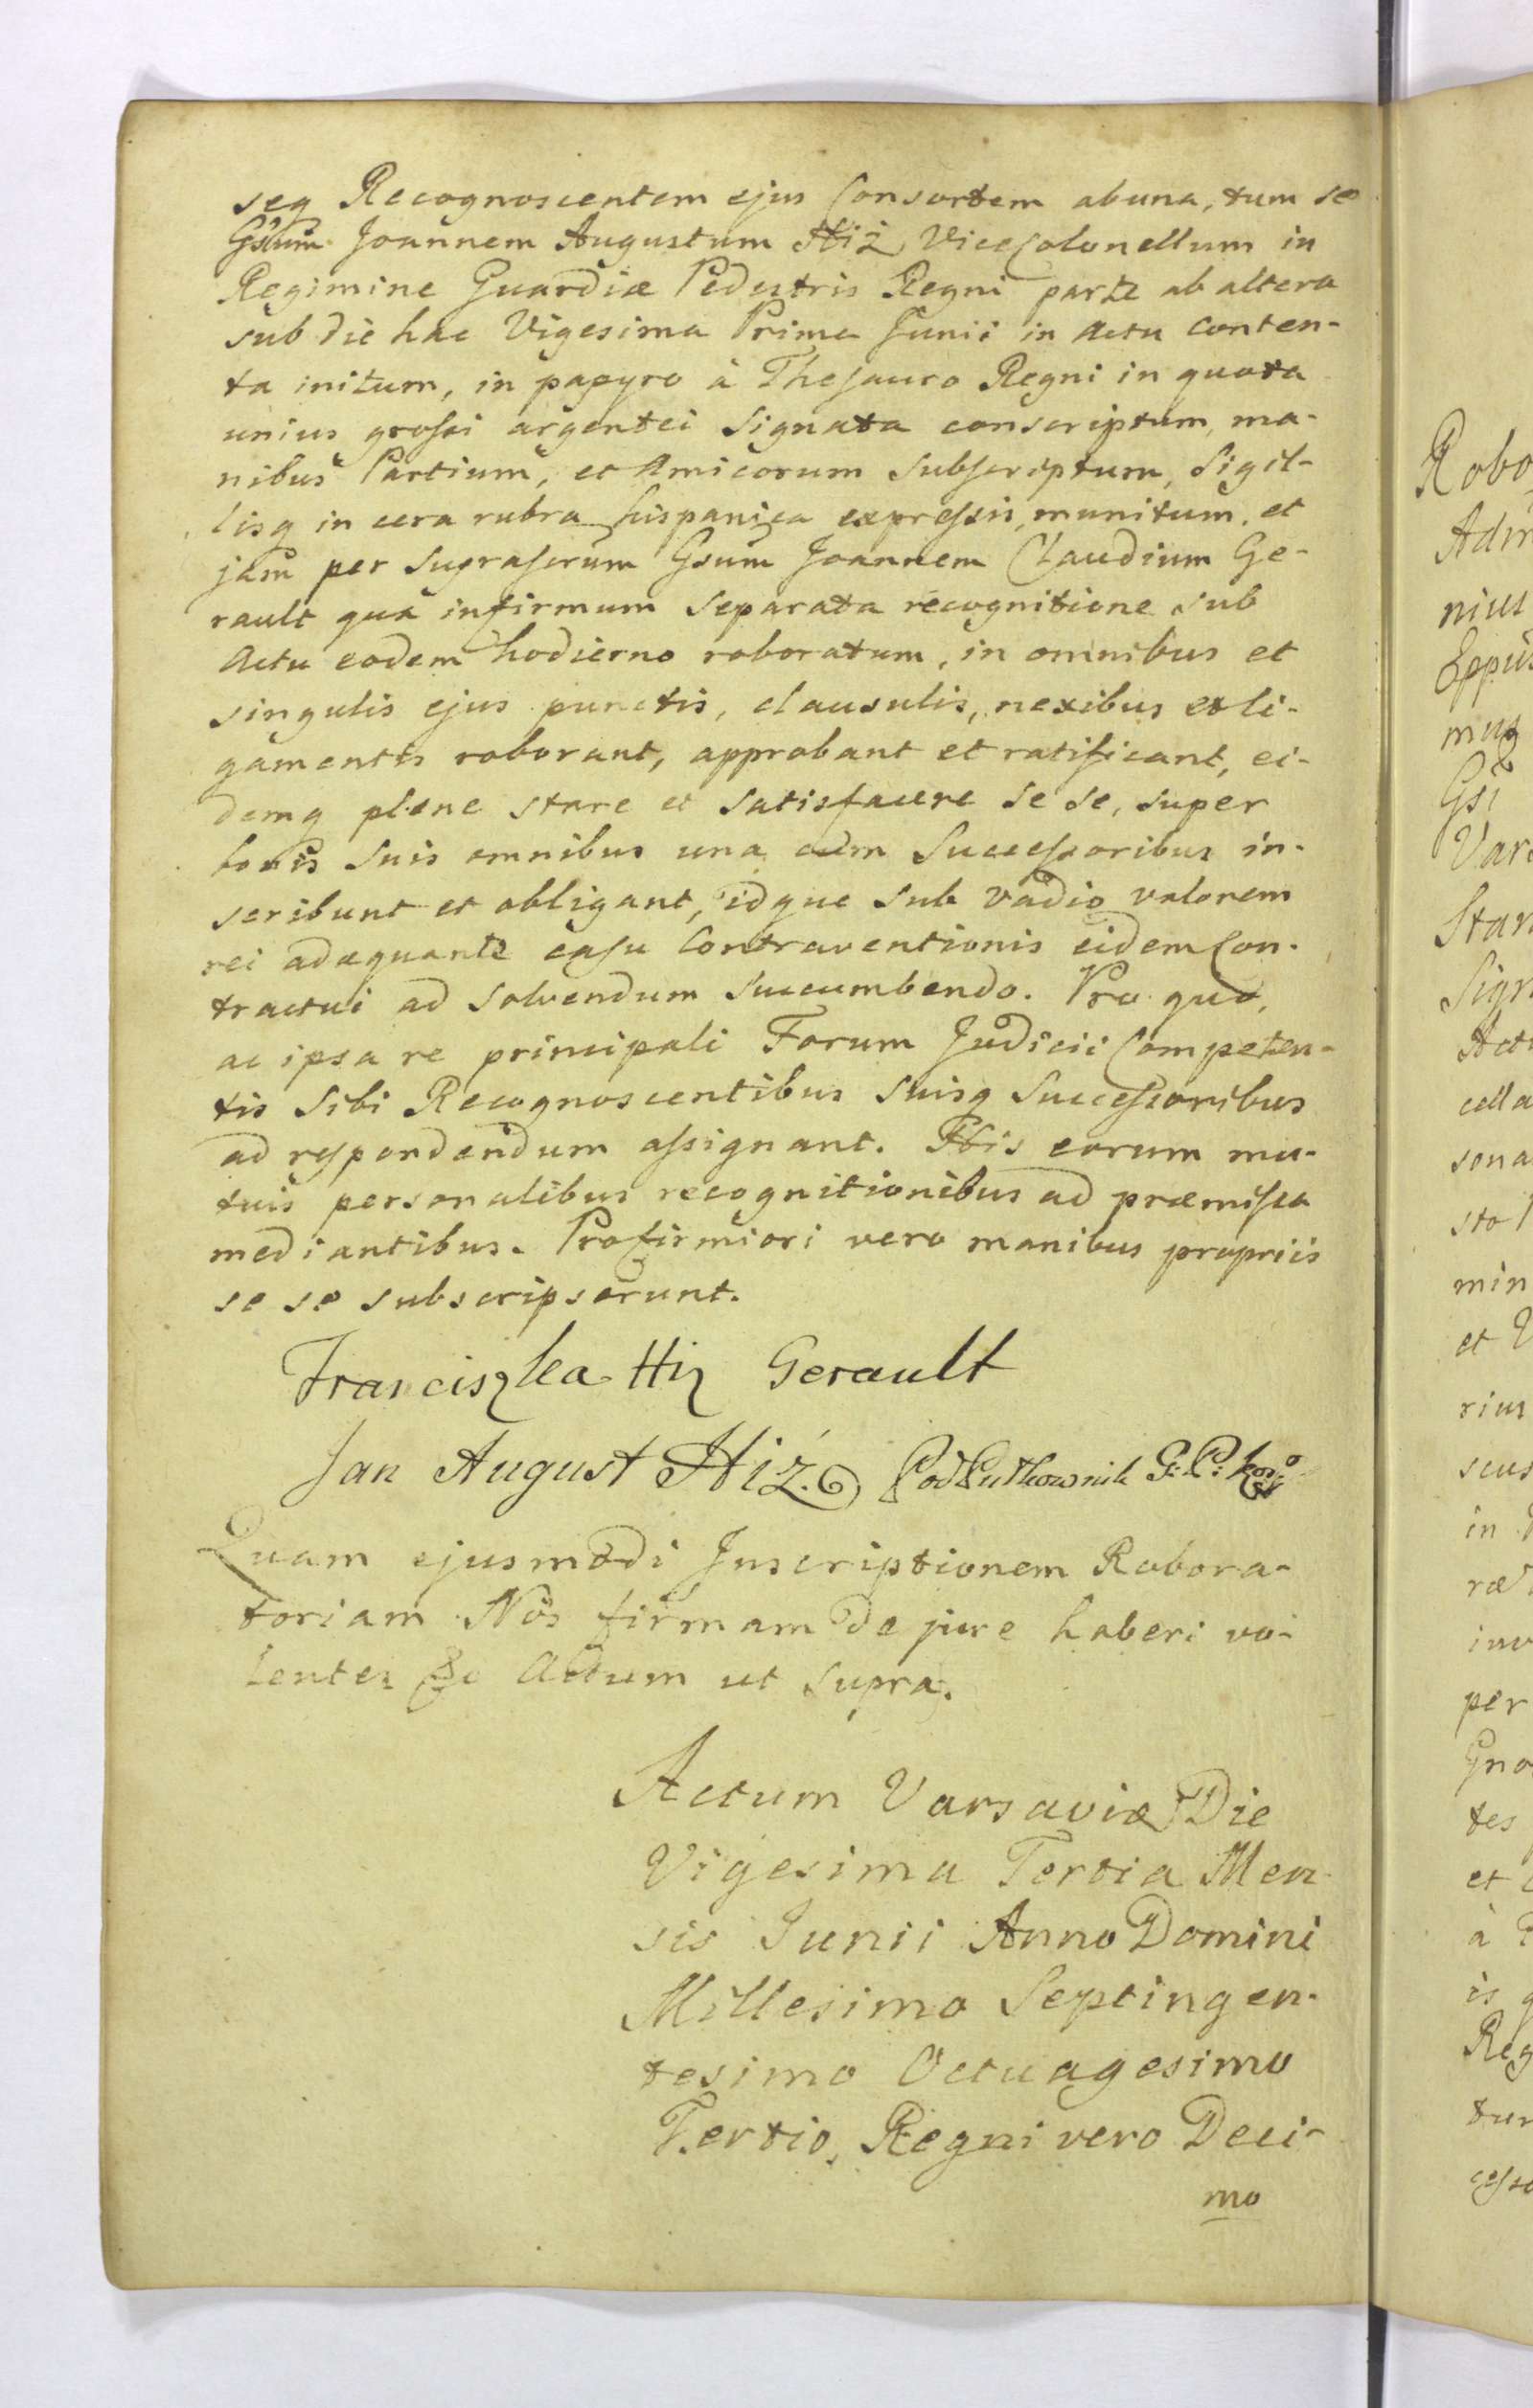 seq Recognoscentem ejus Consortem ab una, tum se
Gsum Joannem Augustum Hiż ViceColonellum in
Regimine Guardiæ Pedestris Regni parte ab altera
sub die hac Vigesima Prima Junii in Actu Conten-
ta initum, in papyro à Thesauro Regni in quota
unius grossi argentei Signata conscriptum, ma-
nibus Partium, et Amicorum Subscriptum, Sigil-
lisq in cera rubra hispanica expressis, munitum, et
jam per Suprascrum Gsum Joannem Claudium Ge-
rault quà infirmum Separata recognitione sub
Actu eodem hodierno roboratum, in omnibus et
singulis ejus punctis, clausulis, nexibus et li-
gamentis roborant, approbant et ratificant, ei-
demq plene stare et Satisfacere se se, super
bonis Suis omnibus una cum Successoribus in-
scribunt et obligant, idque Sub vadio valorem
rei adæquante casu Contraventionis eidem Con-
tractui ad Solvendum Succumbendo. Pro quo,
ac ipsa re principali Forum Judicii Competen-
tis Sibi Recognoscentibus Suisq Successoribus
ad respondendum assignant. His eorum mu-
tuis personalibus recognitionibus ad præmissa
mediantibus. Pro firmiori vero manibus propriis
se se subscripserunt.
Franciszka Hiz Gerault
Jan August Hiż. PodPułkownik G: P:
Quam ejusmodi Inscriptionem Robora-
toriam Nos firmam de jure haberi vo-
lentes &c Actum ut Supra.
Actum Varsaviæ Die
Vigesima Tertia Men-
sis Junii Anno Domini
Millesimo Septingen-
tesimo Octuagesimo
Tertio, Regni vero Deci-
mo
Robo
Adm
nius
mus
Gsi
Vars
Stan
Sign
Actu
cella
sona
sto
min
et
rius
seus
in
ræ
inv
per
Gno
tes
et
à
is
Reg
tur
cesso